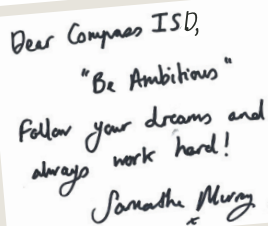 Dear Compass ISD,
"Be Ambitious"
Follow your dreams and
always work hard!
Samantha Murray
x